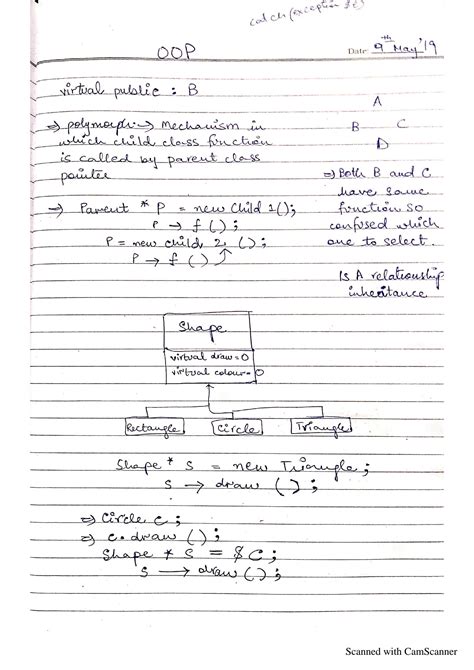 catch(exception &e)
OOP
Date 9th May'19
virtual public : B
A
B C
D
⇒ polymorph:→ Mechanism in
which child class function
is called by parent class
pointer
⇒ Both B and C
have same
function so
confused which
one to select.
→ Parent * P = new Child 1();
P → f ();
P = new child 2 ();
P → f ()
Is A relationship
inheritance
Shape
virtual draw=0
virtual colour=0
Rectangle Circle Triangle
Shape * s = new Triangle;
s → draw ();
⇒ Circle c;
⇒ c.draw ();
Shape * s = &C;
s → draw ();
Scanned with CamScanner